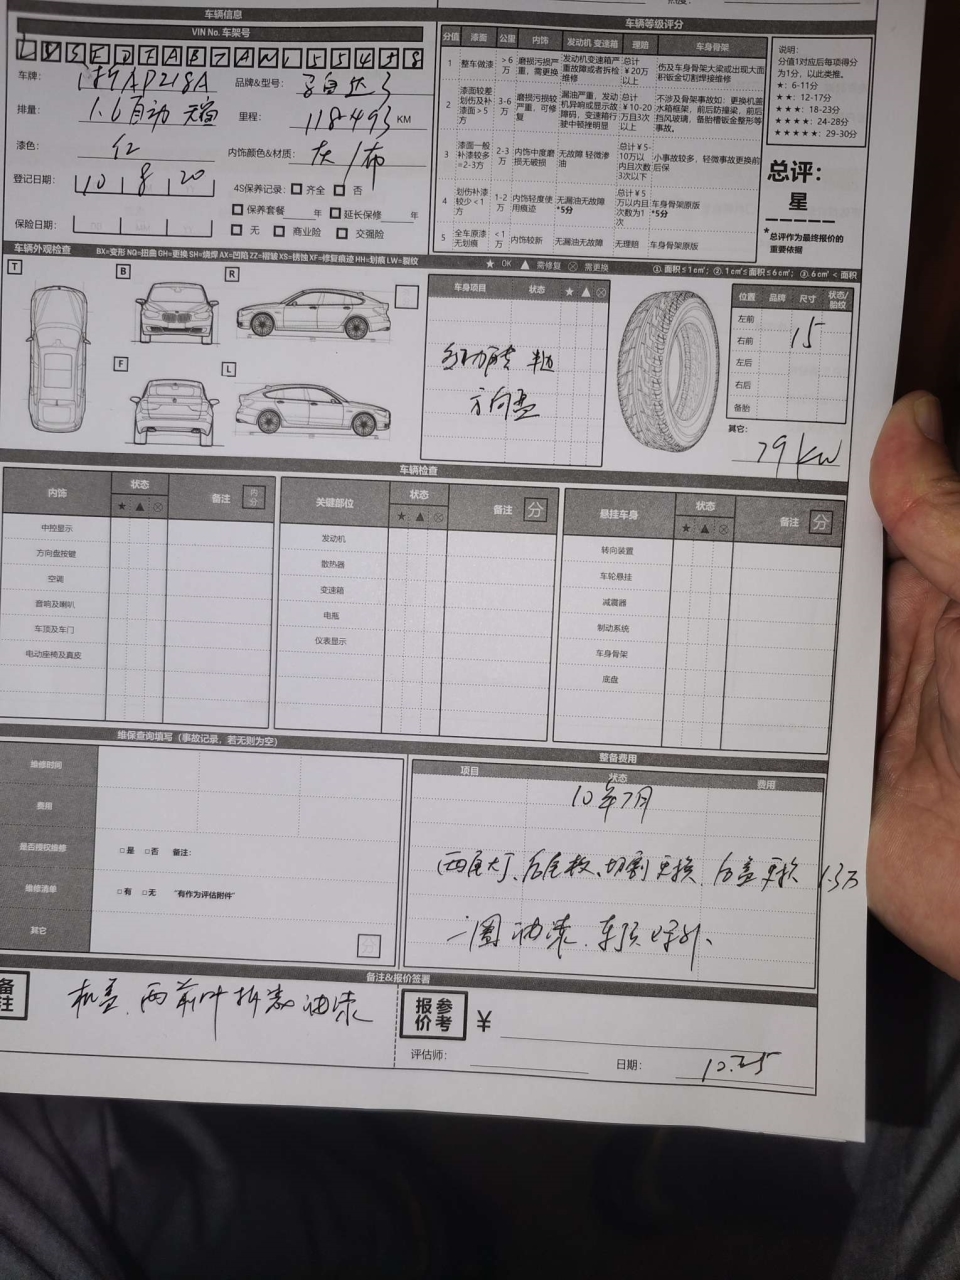 车辆信息
VIN No. 车架号
车牌：
品牌&型号： 马自达3
排量： 1.6自动
里程： 118493 KM
漆色： 红
内饰颜色&材质： 灰/布
登记日期： 10 8 20
4S保养记录： □ 齐全 □ 否
□ 保养套餐 年 □ 延长保修 年
保险日期：
□ 无 □ 商业险 □ 交强险
车辆等级评分
分值 漆面 公里 内饰 发动机 变速箱 理赔 车身骨架
1 整车做漆 > 6万 磨损污损严重，需更换 发动机变速箱严重故障或者拆检维修 总计￥20万以上 伤及车身骨架大梁或出现大面积钣金切割焊接维修
2 漆面较差划伤及补漆面＞5方 3-6万 磨损污损较严重，可修复 漏油严重，发动机异响或显示故障码，变速箱行驶中顿挫明显 总计￥10-20万且3次以上 不涉及骨架事故如：更换机盖水箱框架，前后防撞梁，前后挡风玻璃，备胎槽钣金整形等事故。
3 漆面一般补漆较多=2-3方 2-3万 内饰中度磨损无破损 无故障 轻微渗油 总计￥5-10万以内且次数3次以下 小事故较多，轻微事故更换前后保
4 划伤补漆较少＜1方 1-2万 内饰轻度使用痕迹 无漏油无故障 *5分 总计￥5万以内且次数为1次 车身骨架原版 *5分
5 全车原漆无划痕 < 1万 内饰较新 无漏油无故障 无理赔 车身骨架原版
说明：
分值1对应后每项得分为1分，以此类推。
★：6-11分
★★：12-17分
★★★：18-23分
★★★★：24-28分
★★★★★：29-30分
总评：
星
*总评作为最终报价的重要依据
车辆外观检查 BX=变形 NQ=扭曲 GH=更换 SH=烧焊 AX=凹陷 ZZ=褶皱 XS=锈蚀 XF=修复痕迹 HH=划痕 LW=裂纹
★ OK ▲ 需修复 ⊗ 需更换 ①面积≤1c㎡；②1c㎡≤面积≤6c㎡；③6c㎡＜面积
T B R
F L
车身项目 状态 ★ ▲ ⊗
方向盘
位置 品牌 尺寸 状态/胎纹
左前
右前 15
左后
右后
备胎
其它：
79 kw
车辆检查
内饰 状态 ★ ▲ ⊗ 备注
中控显示
方向盘按键
空调
音响及喇叭
车顶及车门
电动座椅及真皮
关键部位 状态 ★ ▲ ⊗ 备注 分
发动机
散热器
变速箱
电瓶
仪表显示
悬挂车身 状态 ★ ▲ ⊗ 备注 分
转向装置
车轮悬挂
减震器
制动系统
车身骨架
底盘
维保查询填写（事故记录，若无则为空）
维修时间
费用
是否授权维修 □是 □否 备注：
维修清单 □有 □无 "有作为评估附件"
其它 分
整备费用
项目 状态 费用
10年7月
后尾板、切割更换、后盖更换 1.3万
油漆、车顶
备注&报价签署
备注
机盖、两前叶拆装油漆
参考报价 ￥
评估师：
日期： 12.25